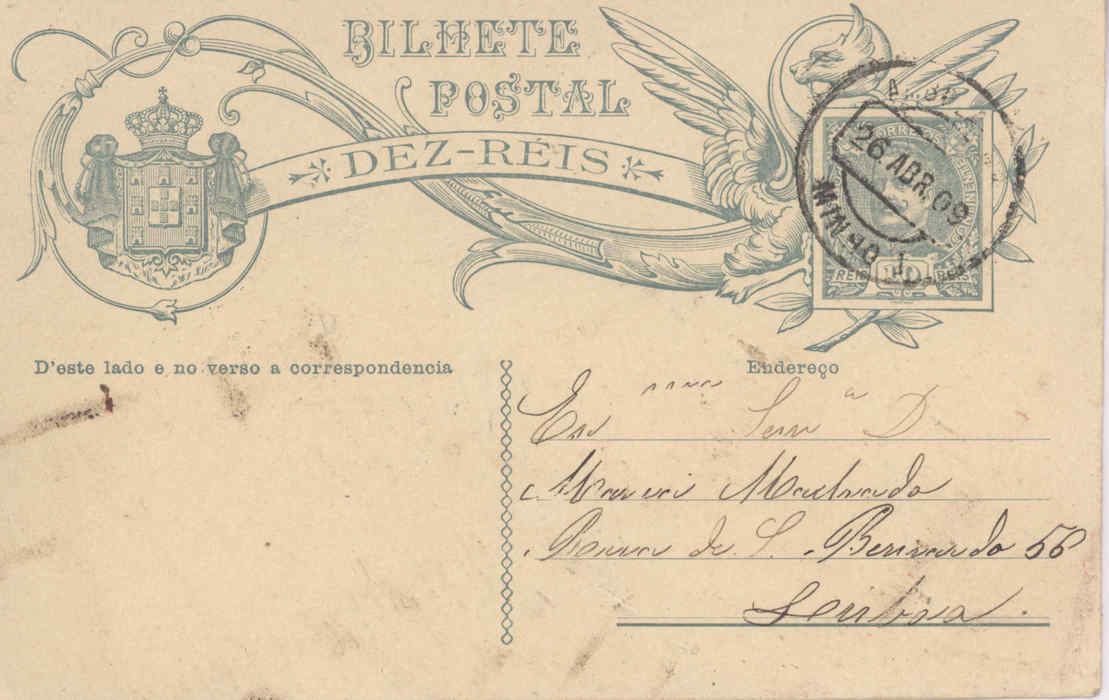 BILHETE
POSTAL
DEZ-RÉIS
CORREIOS
26 ABR. 09
REIS 10 REIS
D'este lado e no verso a correspondencia
Endereço
Senr.ª D
Maria Machado
Rua de S. Bernardo 56
Lisboa.